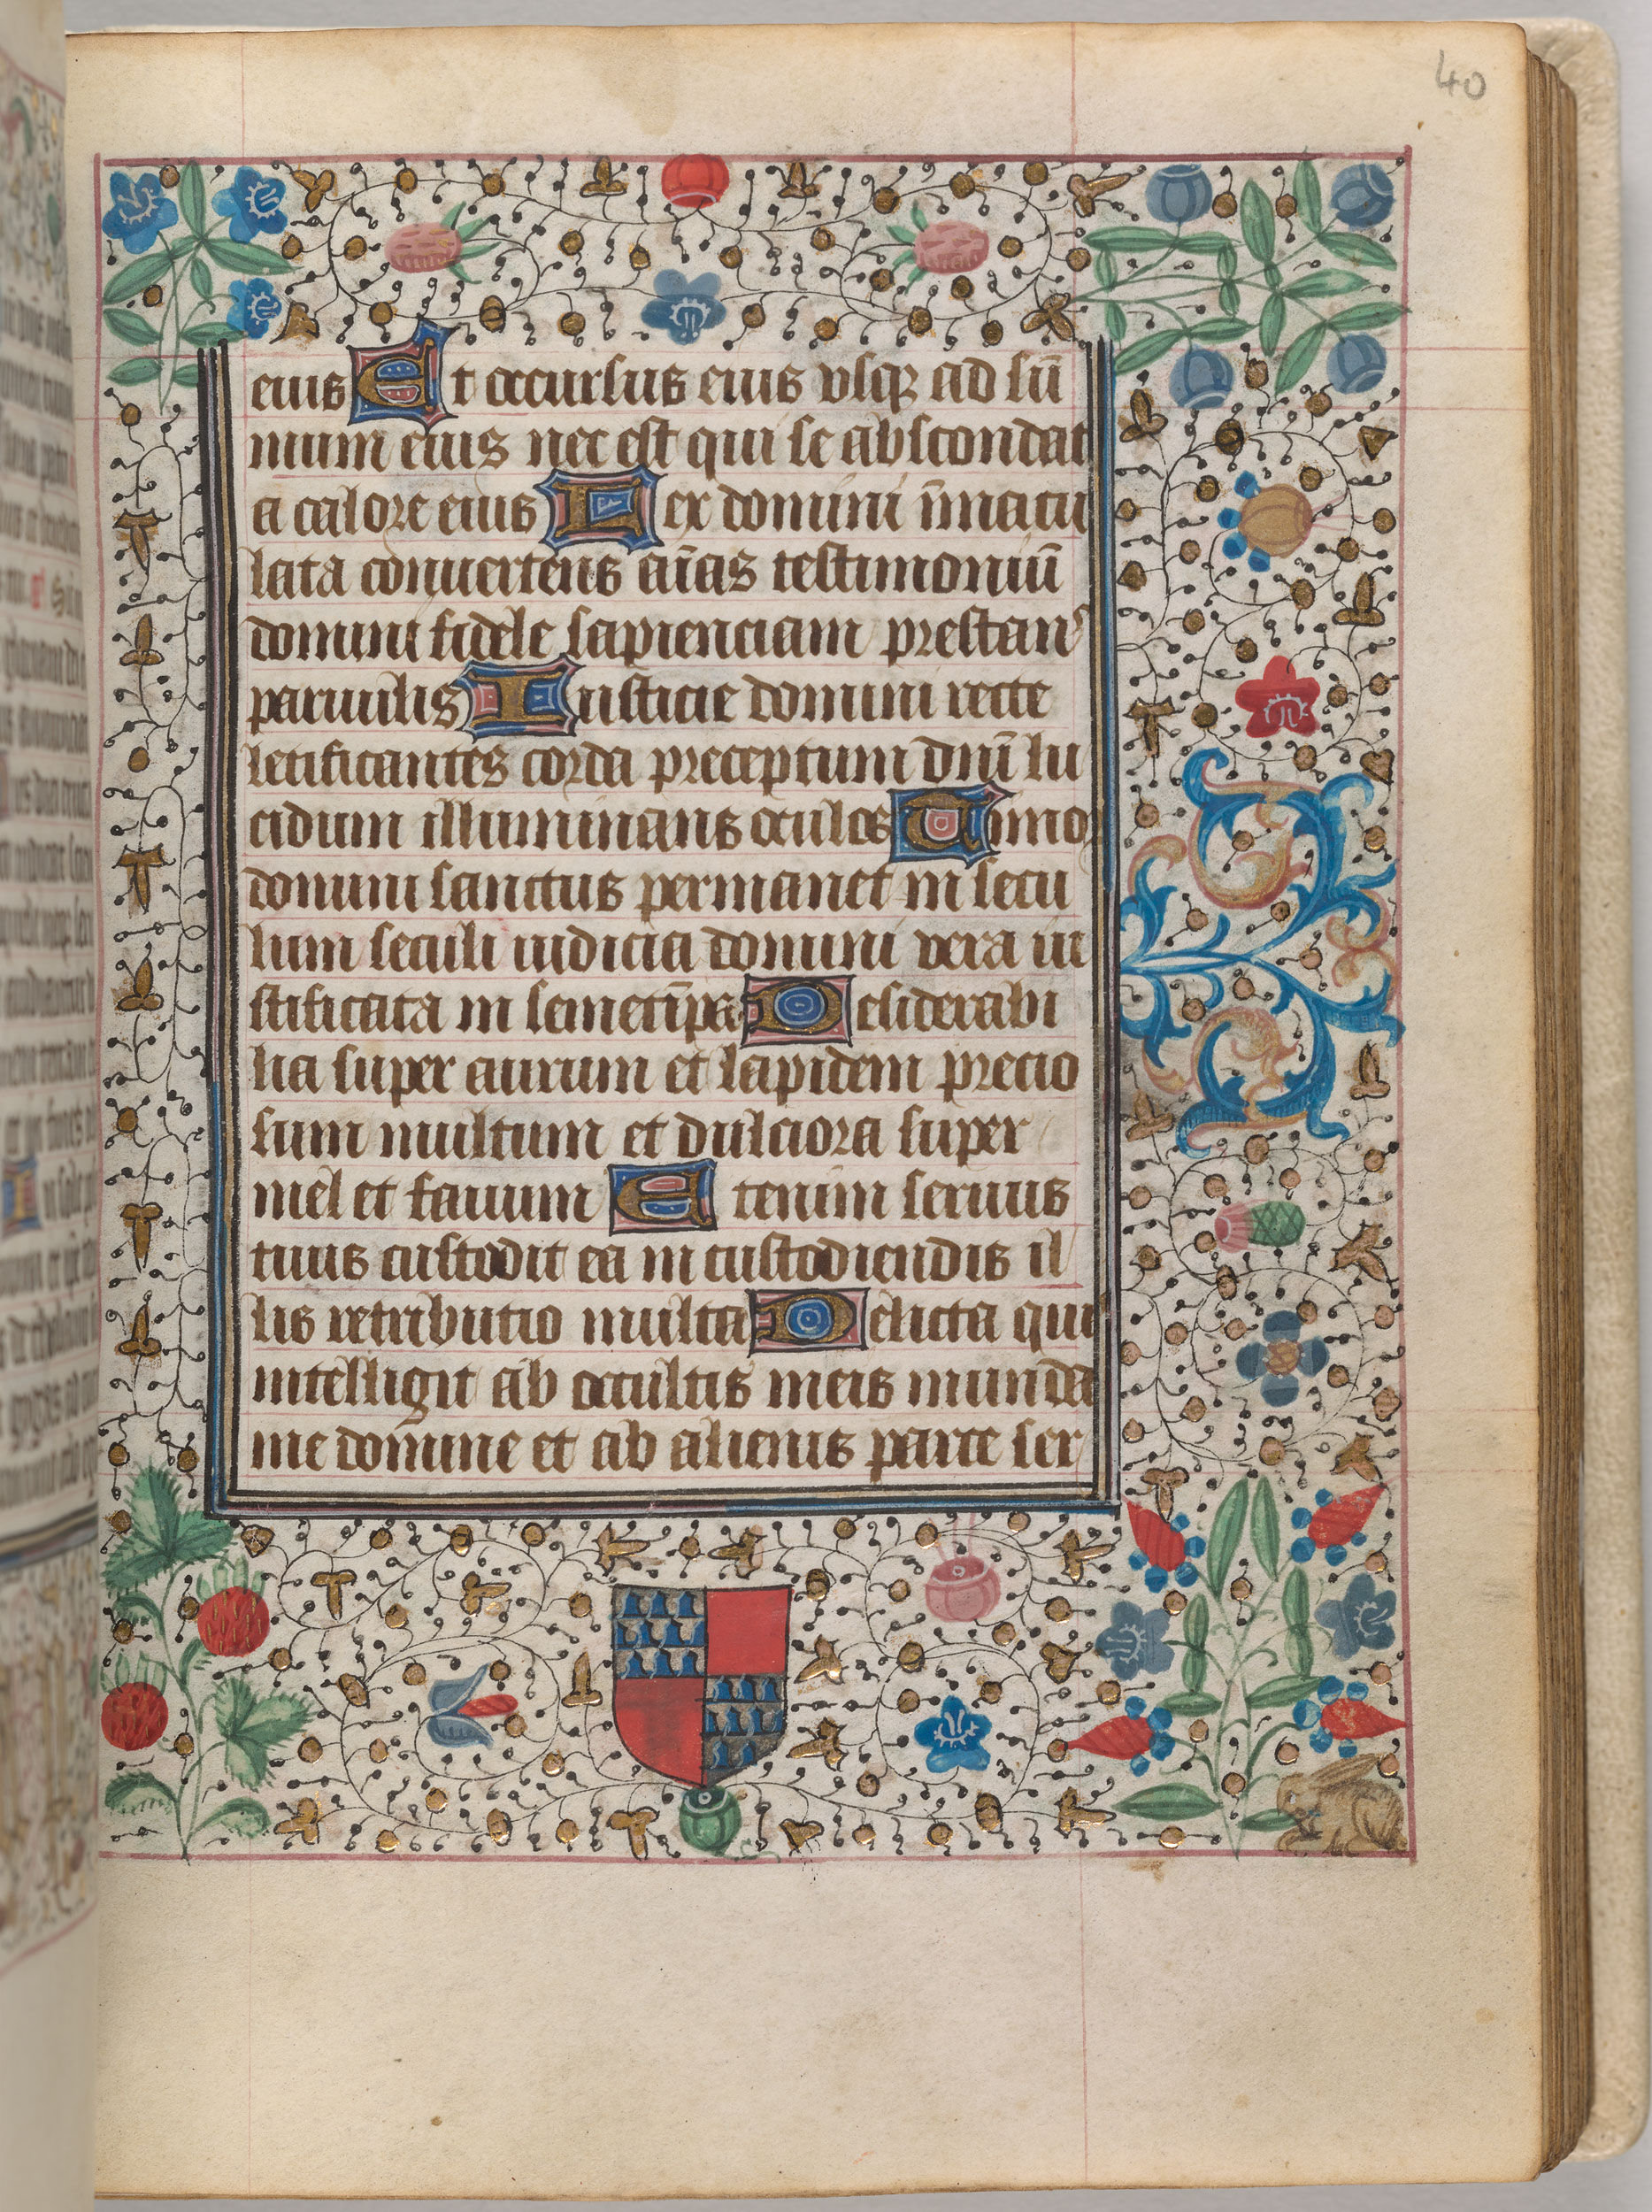 40
eius Et occursus eius usq; ad sū
mum eius nec est qui se abscondat
a calore eius Lex domini īmacu
lata conuertens aīas testimoniū
domini fidele sapienciam prestans
paruulis Iusticie domini recte
letificantes corda preceptum dnī lu
cidum illuminans oculos Timor
domini sanctus permanet in secu
lum seculi iudicia domini vera iu
stificata in semetip̄a Desiderabi
lia super aurum et lapidem precio
sum multum et dulciora super
mel et fauum Etenim seruus
tuus custodit ea in custodiendis il
lis retributio multa Delicta quis
intelligit ab occultis meis munda
me domine et ab alienis parce ser